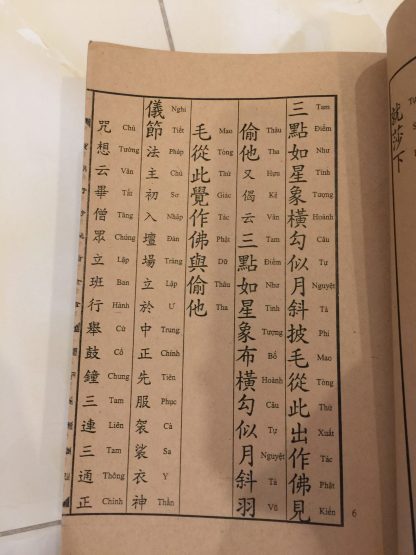 就莎下
三點如星象橫勾似月斜披毛從此出作佛見
Tam Điểm Như Tính Tượng Hoành Câu Tự Nguyệt Tà Phi Mao Tòng Thử Xuất Tác Phật Kiến
偷他又偈云三點如星象布橫勾似月斜羽
Thâu Tha Hựu Kệ Vân Tam Điểm Như Tinh Tượng Bố Hoành Câu Tự Nguyệt Tà Vũ
毛從此覺作佛與偷他
Mao Tòng Thử Giác Tác Phật Dữ Thâu Tha
儀節法主初入壇場立於中正先服袈裟衣神
Nghi Tiết Pháp Chủ Sơ Nhập Đàn Tràng Lập Ư Trung Chính Tiên Phục Cà Sa Y Thần
咒想云畢僧眾立班行舉鼓鐘三連三通正
Chú Tưởng Vân Tất Tăng Chúng Lập Ban Hành Cử Cổ Chung Tam Liên Tam Thông Chính
6